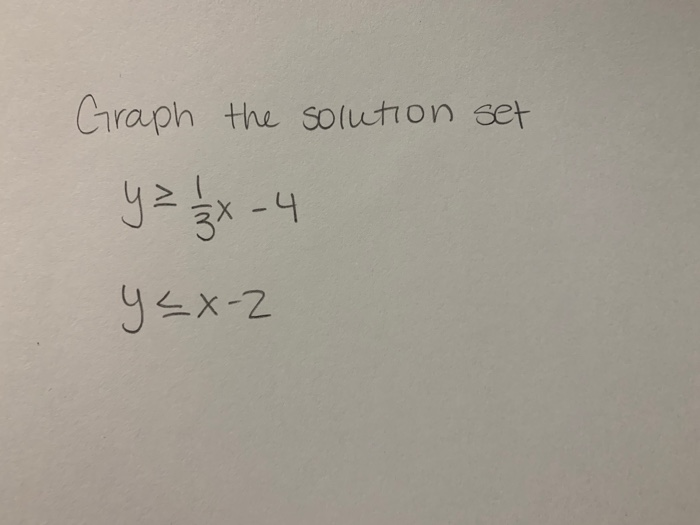 Graph the solution set
y ≥ 1/3 x - 4
y ≤ x - 2